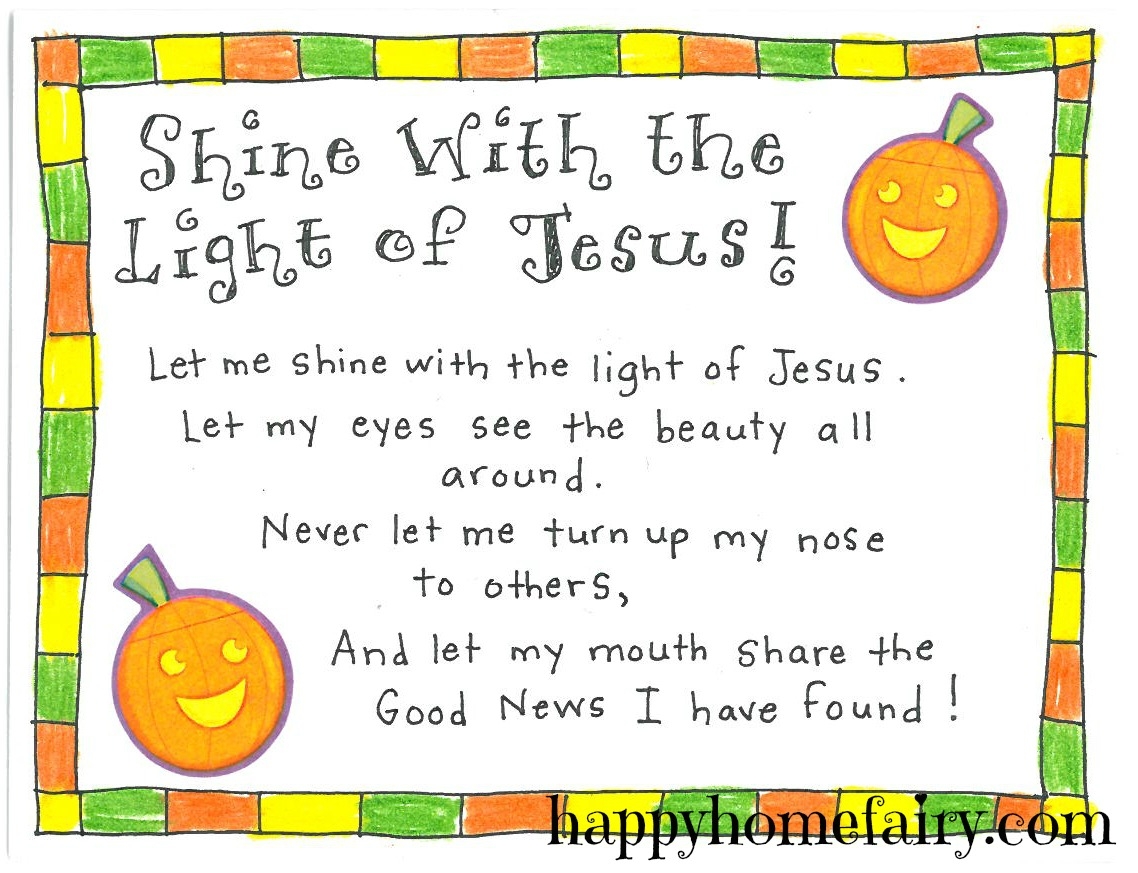 Shine With the
Light of Jesus!
Let me shine with the light of Jesus.
Let my eyes see the beauty all
around.
Never let me turn up my nose
to others,
And let my mouth share the
Good News I have found!
happyhomefairy.com